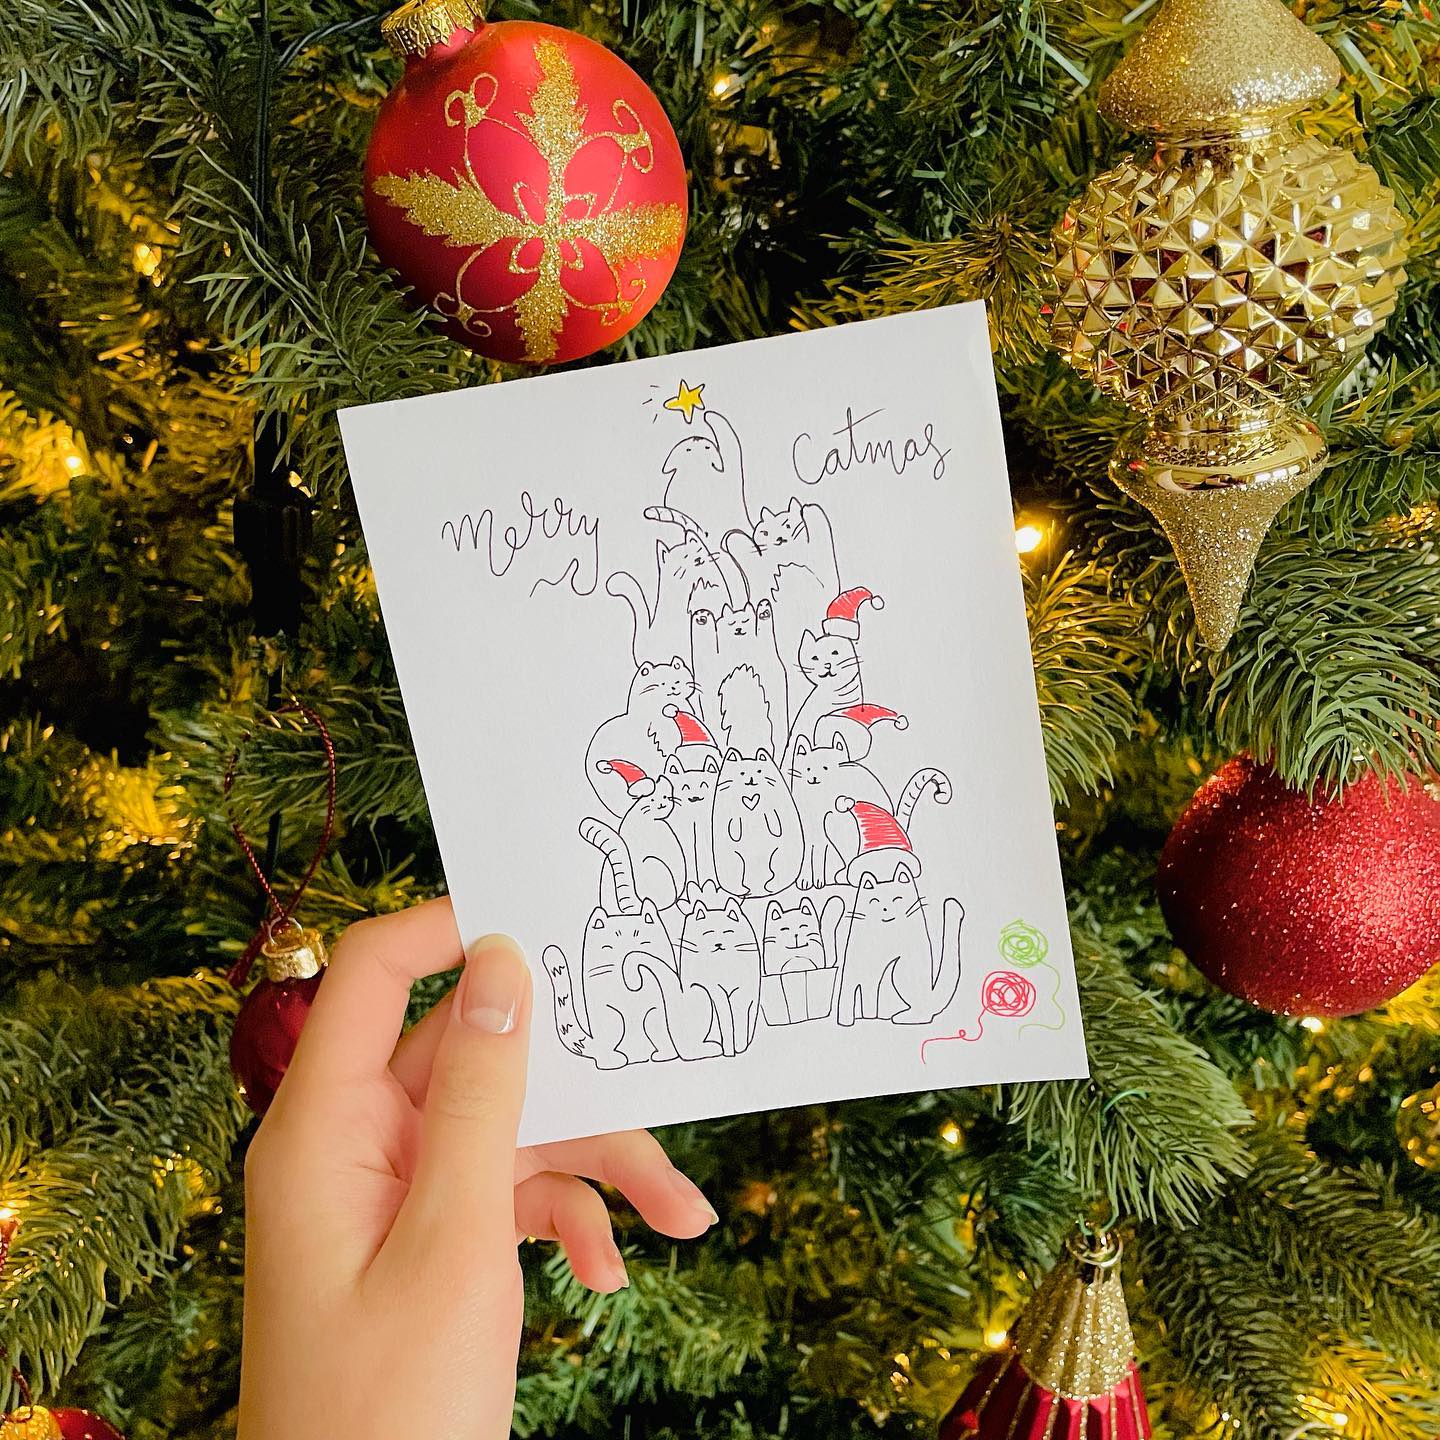 Merry
Catmas